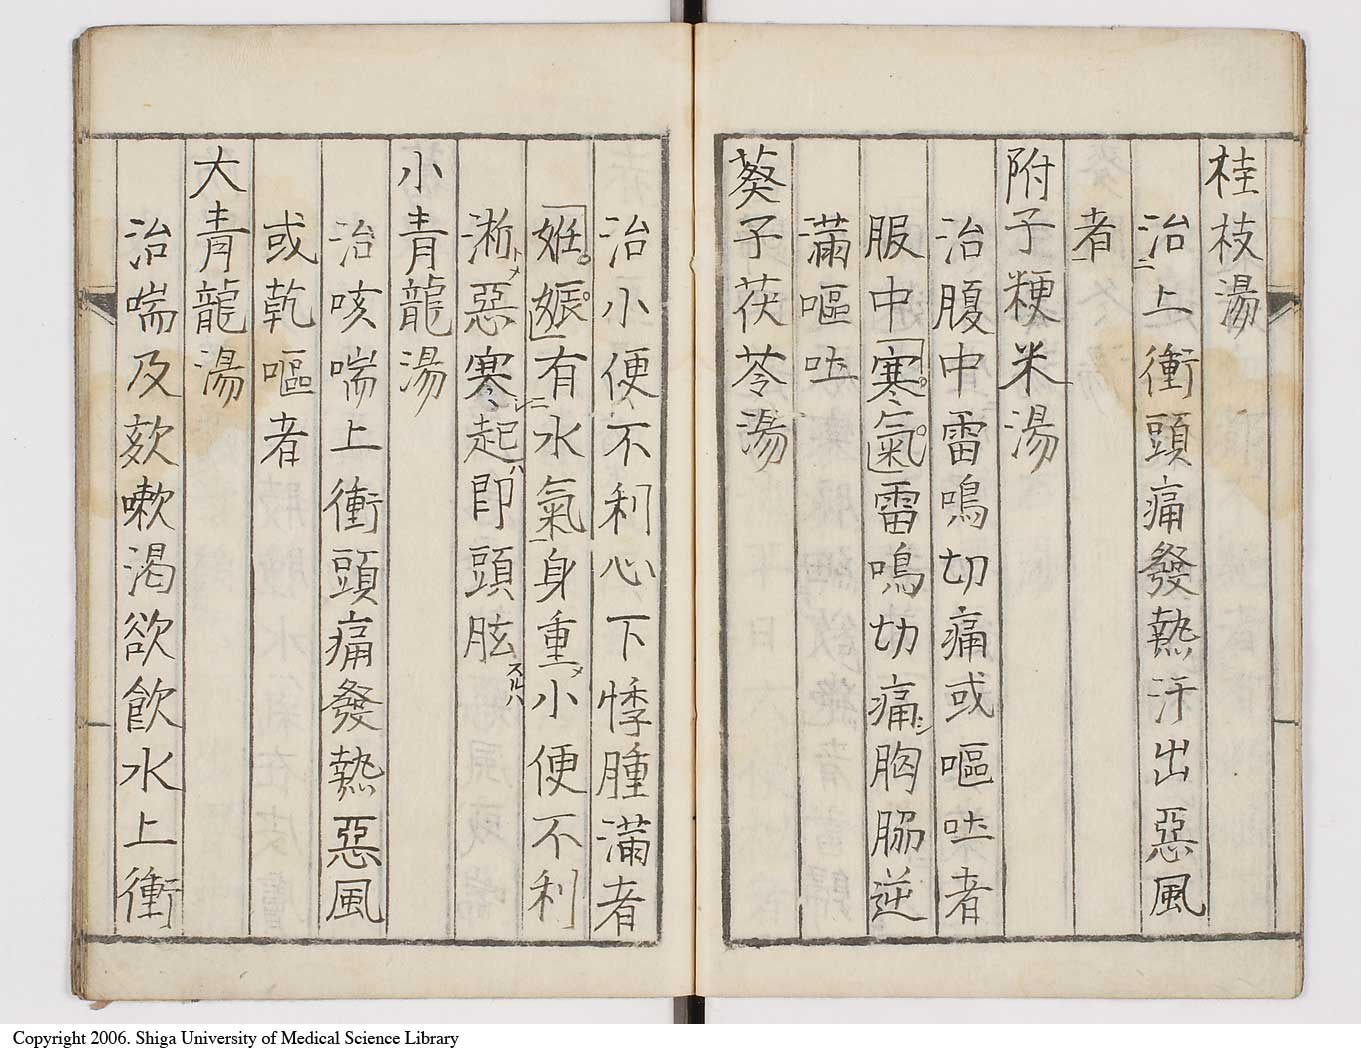 桂枝湯
治上衝頭痛發熱汗出惡風
者
附子粳米湯
治腹中雷鳴切痛或嘔吐者
服中「寒氣」雷鳴切痛胸脇逆
滿嘔吐
葵子茯苓湯
治小便不利心下悸腫滿者
「姙娠」有水氣身重小便不利
淅惡寒起卽頭眩
小青龍湯
治咳喘上衝頭痛發熱惡風
或乾嘔者
大青龍湯
治喘及欬嗽渴欲飮水上衝
Copyright 2006. Shiga University of Medical Science Library